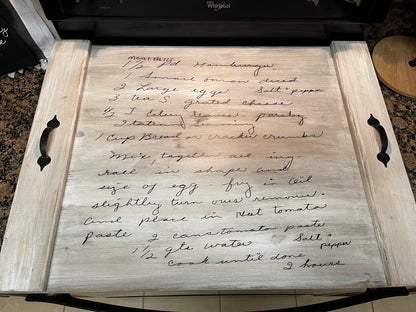 Whirlpool
MEAT BALLS
1½ Pd Hamburger
1 Small onion diced
2 Large eggs Salt + pepper
3 tea S. grated cheese
½ T Celery leaves - parsley
1 Cup Bread or cracker crumbs
Mix together all ing-
roll in shape and
size of egg - fry in oil
slightly turn over remove.
and place in Hot tomato
paste 2 cans tomato paste
1½ qts water Salt + pepper
cook until done
2 hours